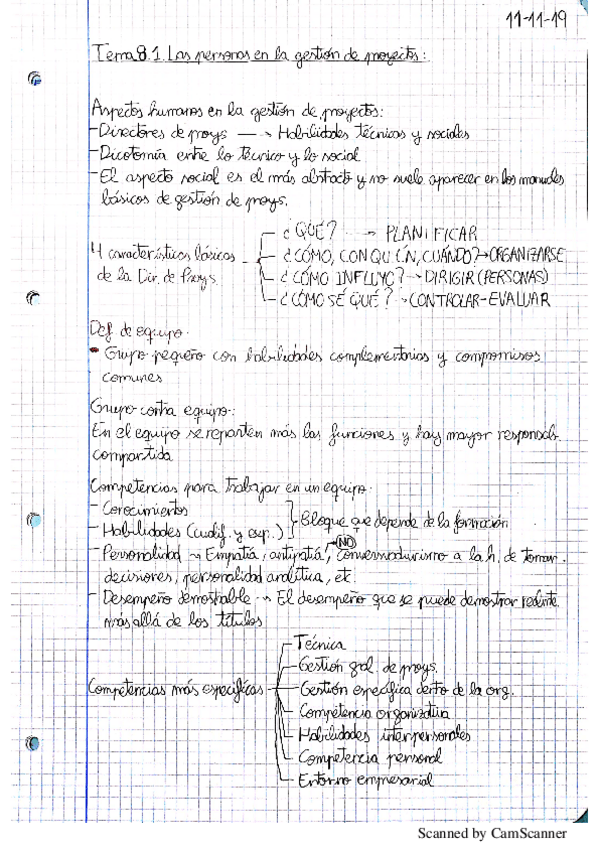 11-11-19
Tema 8.1. Las personas en la gestión de proyectos:
Aspectos humanos en la gestión de proyectos:
- Directores de proys → Habilidades técnicas y sociales
- Dicotomía entre lo técnico y lo social
- El aspecto social es el más abstracto y no suele aparecer en los manuales
básicos de gestión de proys.
4 características básicas
de la Dir. de Proys
- ¿QUÉ? → PLANIFICAR
- ¿CÓMO, CON QUIÉN, CUÁNDO? → ORGANIZARSE
- ¿CÓMO INFLUYO? → DIRIGIR (PERSONAS)
- ¿CÓMO SÉ QUE? → CONTROLAR-EVALUAR
Def de equipo.
• Grupo pequeño con habilidades complementarias y compromisos
comunes
Grupo contra equipo:
En el equipo se reparten más las funciones y hay mayor responsab.
compartida
Competencias para trabajar en un equipo.
- Conocimientos
- Habilidades (cualif. y exp.)
Bloque que depende de la formación
NO
- Personalidad → Empatía, antipatía, conservadurismo a la h. de tomar
decisiones, personalidad analítica, etc
- Desempeño demostrable → El desempeño que se puede demostrar
más allá de los títulos
Competencias más específicas
- Técnica
- Gestión gral. de proys.
- Gestión específica dentro de la org.
- Competencia organizativa
- Habilidades interpersonales
- Competencia personal
- Entorno empresarial
Scanned by CamScanner